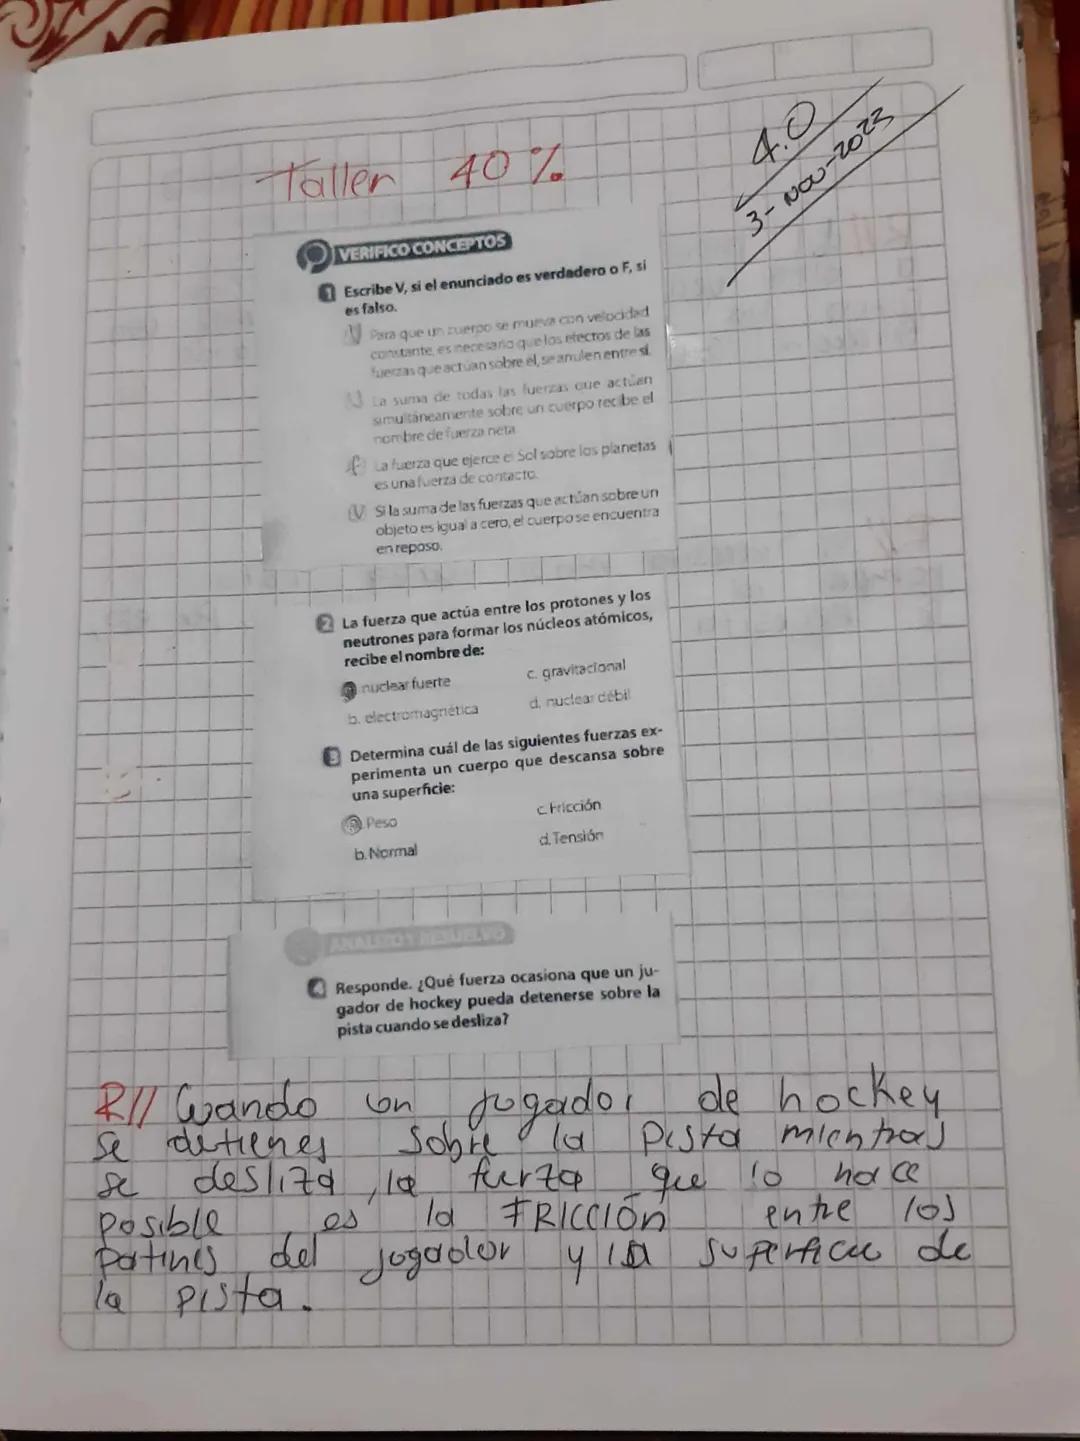 Taller 40%
4.0
3-Nov-2023
VERIFICO CONCEPTOS
1 Escribe V, si el enunciado es verdadero o F, si
es falso.
V Para que un cuerpo se mueva con velocidad
constante, es necesario que los efectos de las
fuerzas que actúan sobre él, se anulen entre sí.
V La suma de todas las fuerzas que actúan
simultáneamente sobre un cuerpo recibe el
nombre de fuerza neta
F La fuerza que ejerce el Sol sobre los planetas
es una fuerza de contacto.
V Si la suma de las fuerzas que actúan sobre un
objeto es igual a cero, el cuerpo se encuentra
en reposo.
2 La fuerza que actúa entre los protones y los
neutrones para formar los núcleos atómicos,
recibe el nombre de:
nuclear fuerte
c. gravitacional
b. electromagnética
d. nuclear débil
3 Determina cuál de las siguientes fuerzas ex-
perimenta un cuerpo que descansa sobre
una superficie:
a. Peso
c. Fricción
b. Normal
d. Tensión
ANALIZO Y RESUELVO
4 Responde. ¿Qué fuerza ocasiona que un ju-
gador de hockey pueda detenerse sobre la
pista cuando se desliza?
R// Cuando un jugador de hockey
se detienes sobre la pista mientras
se desliza, la fuerza que lo hace
posible es la FRICCIÓN entre los
patines del jugador y la superficie de
la pista.